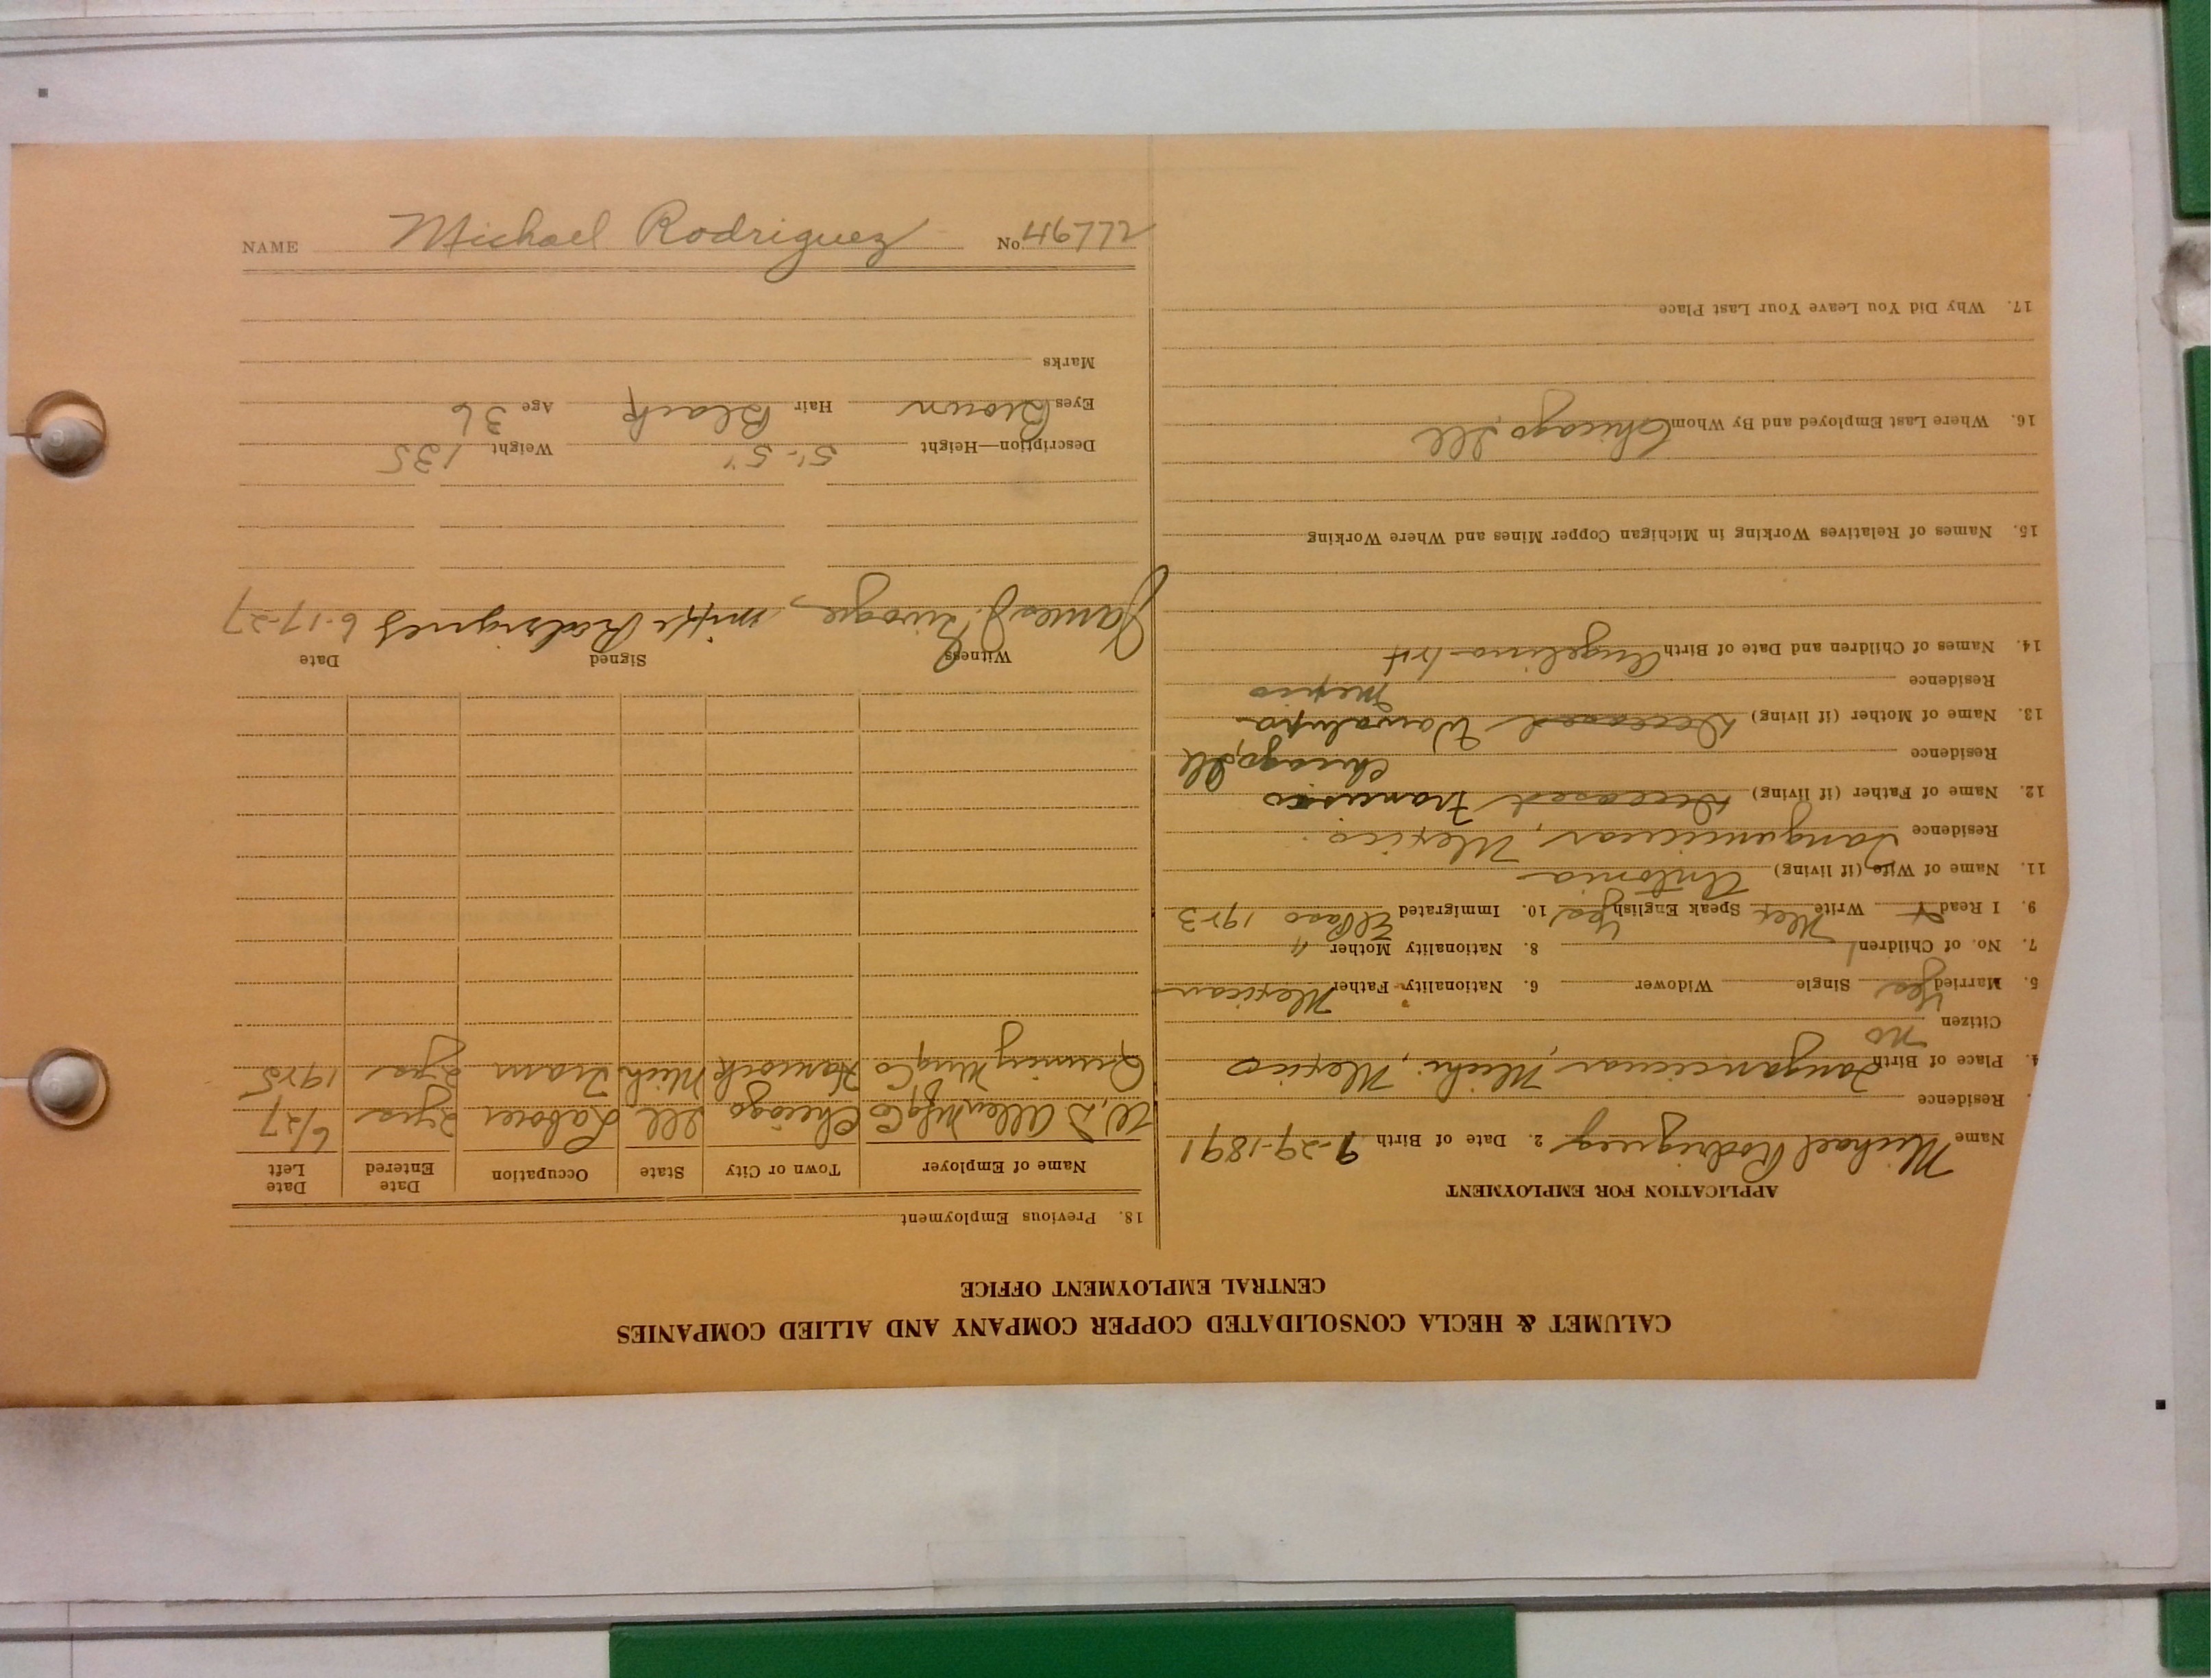 NAME Michael Rodriguez No. 46772
CALUMET & HECLA CONSOLIDATED COPPER COMPANY AND ALLIED COMPANIES
CENTRAL EMPLOYMENT OFFICE
APPLICATION FOR EMPLOYMENT
Name Michael Rodriguez 2. Date of Birth 9-29-1891
Residence
4. Place of Birth Tangancicuar, Michi, Mexico
Citizen no
5. Married Yes Single Widower 6. Nationality Father Mexican
7. No. of Children 1 8. Nationality Mother "
9. I Read Write Mex Speak English Yes 10. Immigrated El Paso 1923
11. Name of Wife (if living) Antonia
Residence Mexico
12. Name of Father (if living) Deceased Francisco
Residence Chicago, Ill
13. Name of Mother (if living) Deceased
Residence Mexico
14. Names of Children and Date of Birth Angelina
15. Names of Relatives Working in Michigan Copper Mines and Where Working
16. Where Last Employed and By Whom Chicago, Ill
17. Why Did You Leave Your Last Place
18. Previous Employment
Name of Employer Town or City State Occupation Date Entered Date Left
W, D Allen Mfg Co Chicago Ill Laborer 2 yrs 6/27
Quincy Mng Co Hancock Mich Tram 2 yrs 1925
Witness Signed Date
James J. 6-17-27
Description—Height 5'-5" Weight 135
Eyes Brown Hair Black Age 36
Marks